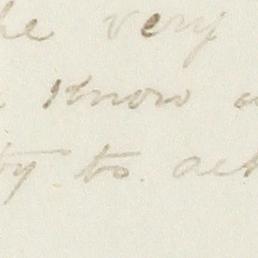 he very
know
by to act